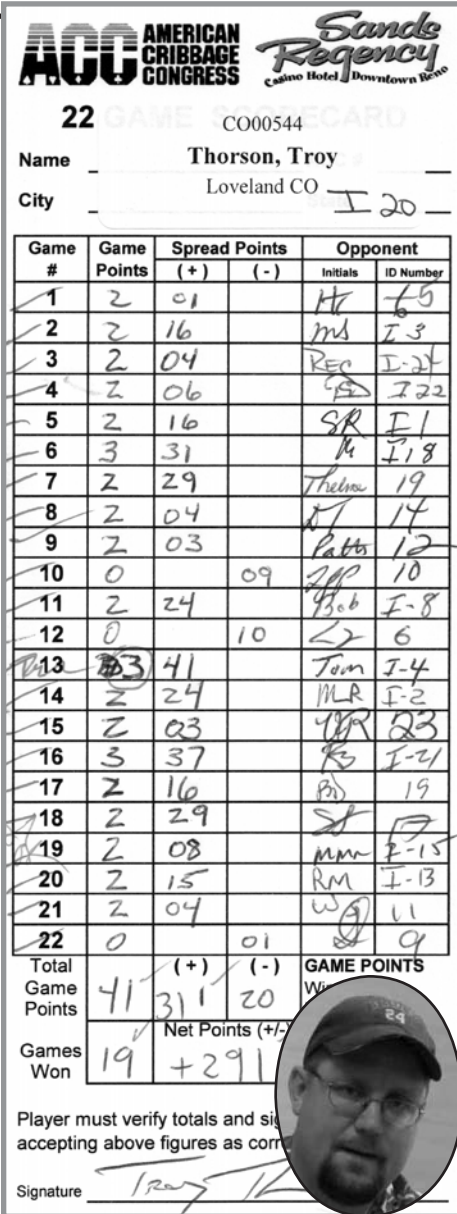 ACC AMERICAN
CRIBBAGE
CONGRESS
Sands
Regency
Casino Hotel Downtown Reno
22 GAME SCORECARD
CO00544
Name Thorson, Troy
City Loveland CO I 20
Game Game Spread Points Opponent
# Points (+) (-) Initials ID Number
1 2 01
2 2 16 MS I-3
3 2 04 REC
4 2 06 I 22
5 2 16 SR I 1
6 3 31 I 18
7 2 29 Thelma 19
8 2 04 DT 14
9 2 03 Patts 12
10 0 09 10
11 2 24 Bob I-8
12 0 10 6
13 3 41 Tom I-4
14 2 24 MR I-2
15 2 03 23
16 3 37 I-21
17 2 16 19
18 2 29
19 2 08 MMR I-15
20 2 15 RM I-13
21 2 04 11
22 0 01 9
Total (+) (-) GAME POINTS
Game
Points 41 311 20
Net Points (+/-)
Games
Won 19 +291
Player must verify totals and
accepting above figures as
Signature Troy
24